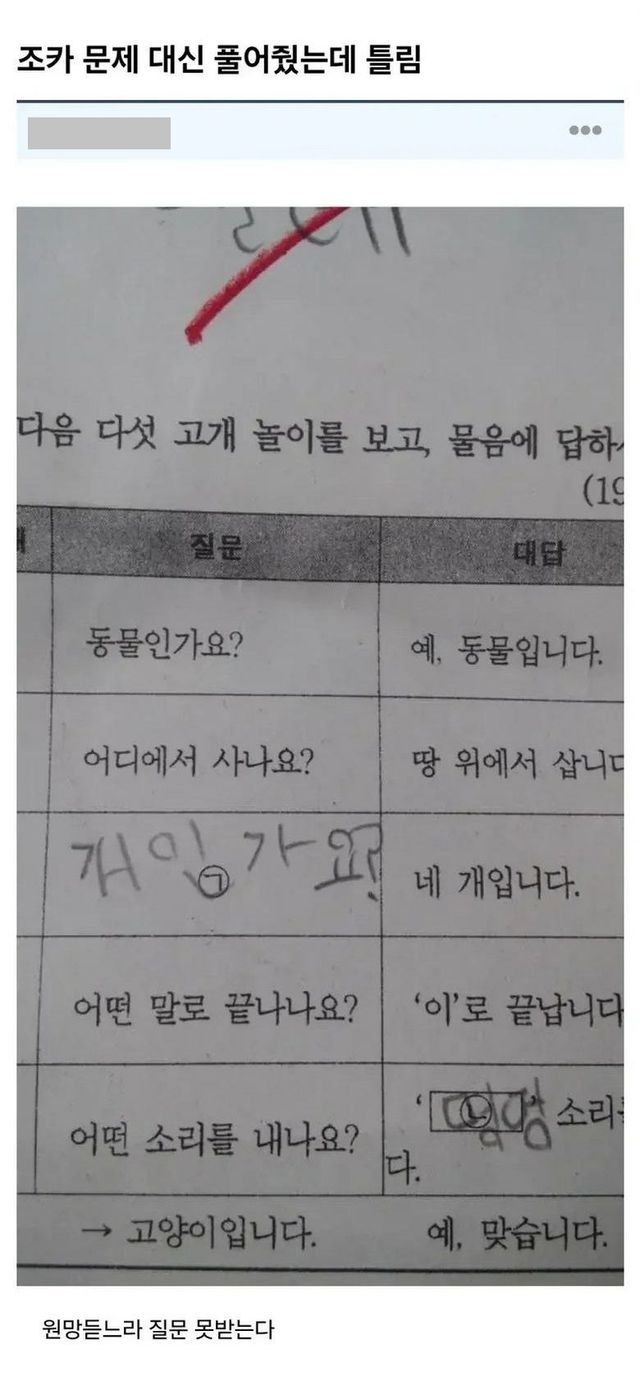 조카 문제 대신 풀어줬는데 틀림
다음 다섯 고개 놀이를 보고, 물음에 답하
(19
질문 대답
동물인가요? 예, 동물입니다.
어디에서 사나요? 땅 위에서 삽니다
개인가요? ㉠ 네 개입니다.
어떤 말로 끝나나요? ‘이’로 끝납니다
어떤 소리를 내나요? ‘ ㉡ ’ 소리를
다.
→ 고양이입니다. 예, 맞습니다.
원망듣느라 질문 못받는다